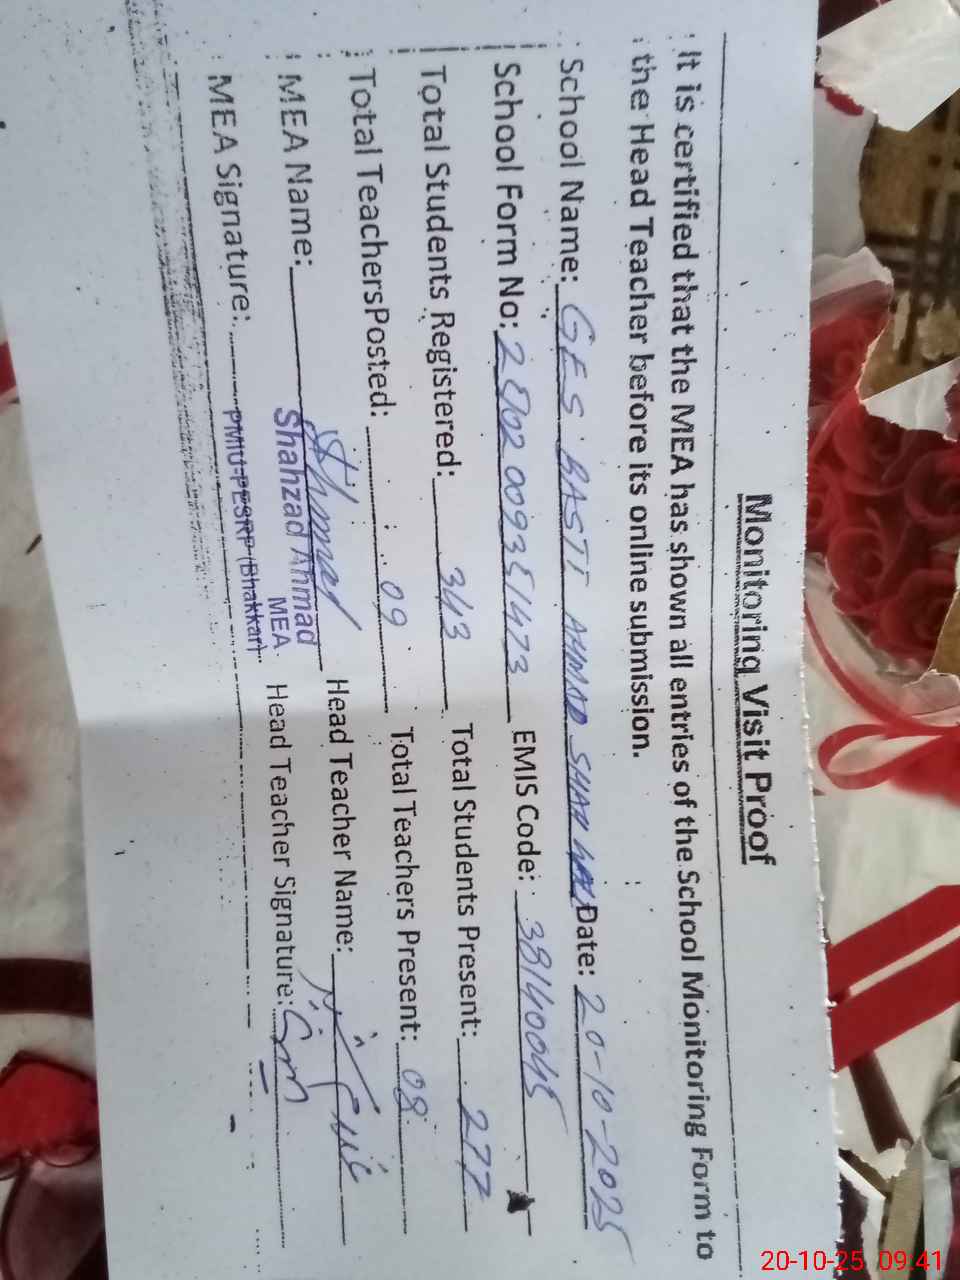 Monitoring Visit Proof
It is certified that the MEA has shown all entries of the School Monitoring Form to
the Head Teacher before its online submission.
School Name: GES BASTI AHMAD SHAH WALI Date: 20-10-2025
School Form No: EMIS Code: 38140045
Total Students Registered: 343 Total Students Present: 277
Total TeachersPosted: 09 Total Teachers Present: 08
MEA Name: Shahzad Ahmad Head Teacher Name:
MEA
MEA Signature: PMIU-PESRP (Bhakkar) Head Teacher Signature:
20-10-25 09:41